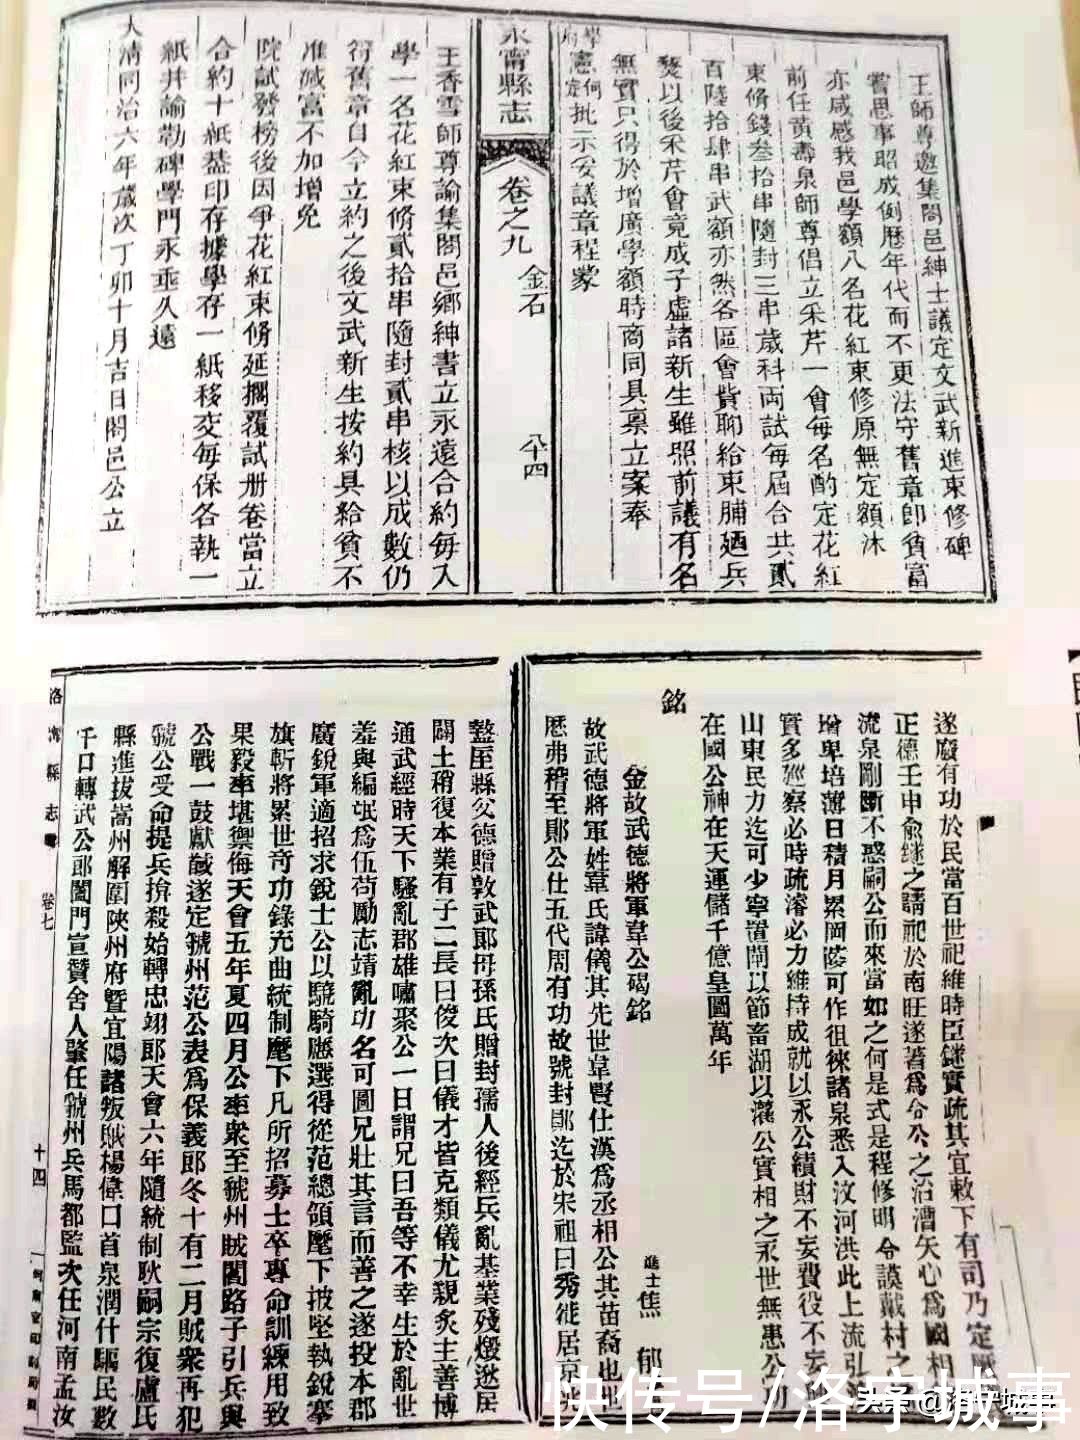 王師尊邀集闔邑紳士議定文武新進束修碑
嘗思事昭成例歷年代而不更法守舊章卽貧富
亦咸感我邑學額八名花紅束修原無定額沐
前任黃壽泉師尊倡立采芹一會每名酌定花紅
束脩錢叁拾串隨封三串歲科両試每屆合共貳
百陸拾肆串武額亦然各區會貲聊給束脯廼兵
燹以後采芹會竟成子虛諸新生雖照前議有名
無實只得於增廣學額時商同具稟立案奉
學憲何批示妥議章程蒙
府 定
永甯縣志
卷之九
金石
八十四
王香雪師尊諭集闔邑鄉紳書立永遠合約每入
學一名花紅束脩貳拾串隨封貳串核以成數仍
符舊章自今立約之後文武新生按約具給貧不
准減富不加增免
院試發榜後因爭花紅束脩延擱覆試册卷當立
合約十紙蓋印存據學存一紙移交每保各執一
紙并諭勒碑學門永垂久遠
大清同治六年歲次丁卯十月吉日闔邑公立
遂廢有功於民當百世祀維時臣鏸實疏其宜敕下有司乃定
正德壬申俞繼之請祀於南旺遂著爲令公之治漕矢心爲國相
流泉剛斷不惑嗣公而來當如之何是式是程修明令謨戴村之
增卑培薄日積月累岡陵可作徂徠諸泉悉入汶河洪此上流引
實多巡察必時疏濬必力維持成就以永公績財不妄費役不妄
山東民力迄可少寧置閘以節畜湖以瀦公實相之永世無患公
在國公神在天運儲千億皇圖萬年
銘
金故武德將軍韋公碣銘
進士焦郁
故武德將軍姓韋氏諱儀其先世韋賢仕漢爲丞相公其苗裔也世
歷弗稽至鄖公仕五代周有功故號封鄖迄於宋祖曰秀徙居京兆
盩厔縣父德贈敦武郎母孫氏贈封孺人後經兵亂基業殘燬迯居
關土稍復本業有子二長曰俊次曰儀才皆克類儀尤親炙主善博
通武經時天下騷亂郡雄嘯聚公一日謂兄曰吾等不幸生於亂世
羞與編氓爲伍苟勵志靖亂功名可圖兄壯其言而善之遂投本郡
廣銳軍適招求銳士公以驍騎應選得從范總領麾下披堅執銳搴
旗斬將累世奇功錄充曲統制麾下凡所招募士卒專命訓練用致
果毅率堪禦侮天會五年夏四月公率衆至虢州賊閻路子引兵與
公戰一鼓獻馘遂定虢州范公表爲保義郎冬十有二月賊衆再犯
虢公受命提兵揜殺始轉忠翊郎天會六年隨統制耿嗣宗復盧氏
縣進拔嵩州解圍陝州府曁宜陽諸叛賊楊偉口首泉潤什驅民數
千口轉武公郎閣門宣贊舍人肇任虢州兵馬都監次任河南孟汝
洛寧縣志
卷七
十四
快传号/洛宁城事
头条@洛宁城事